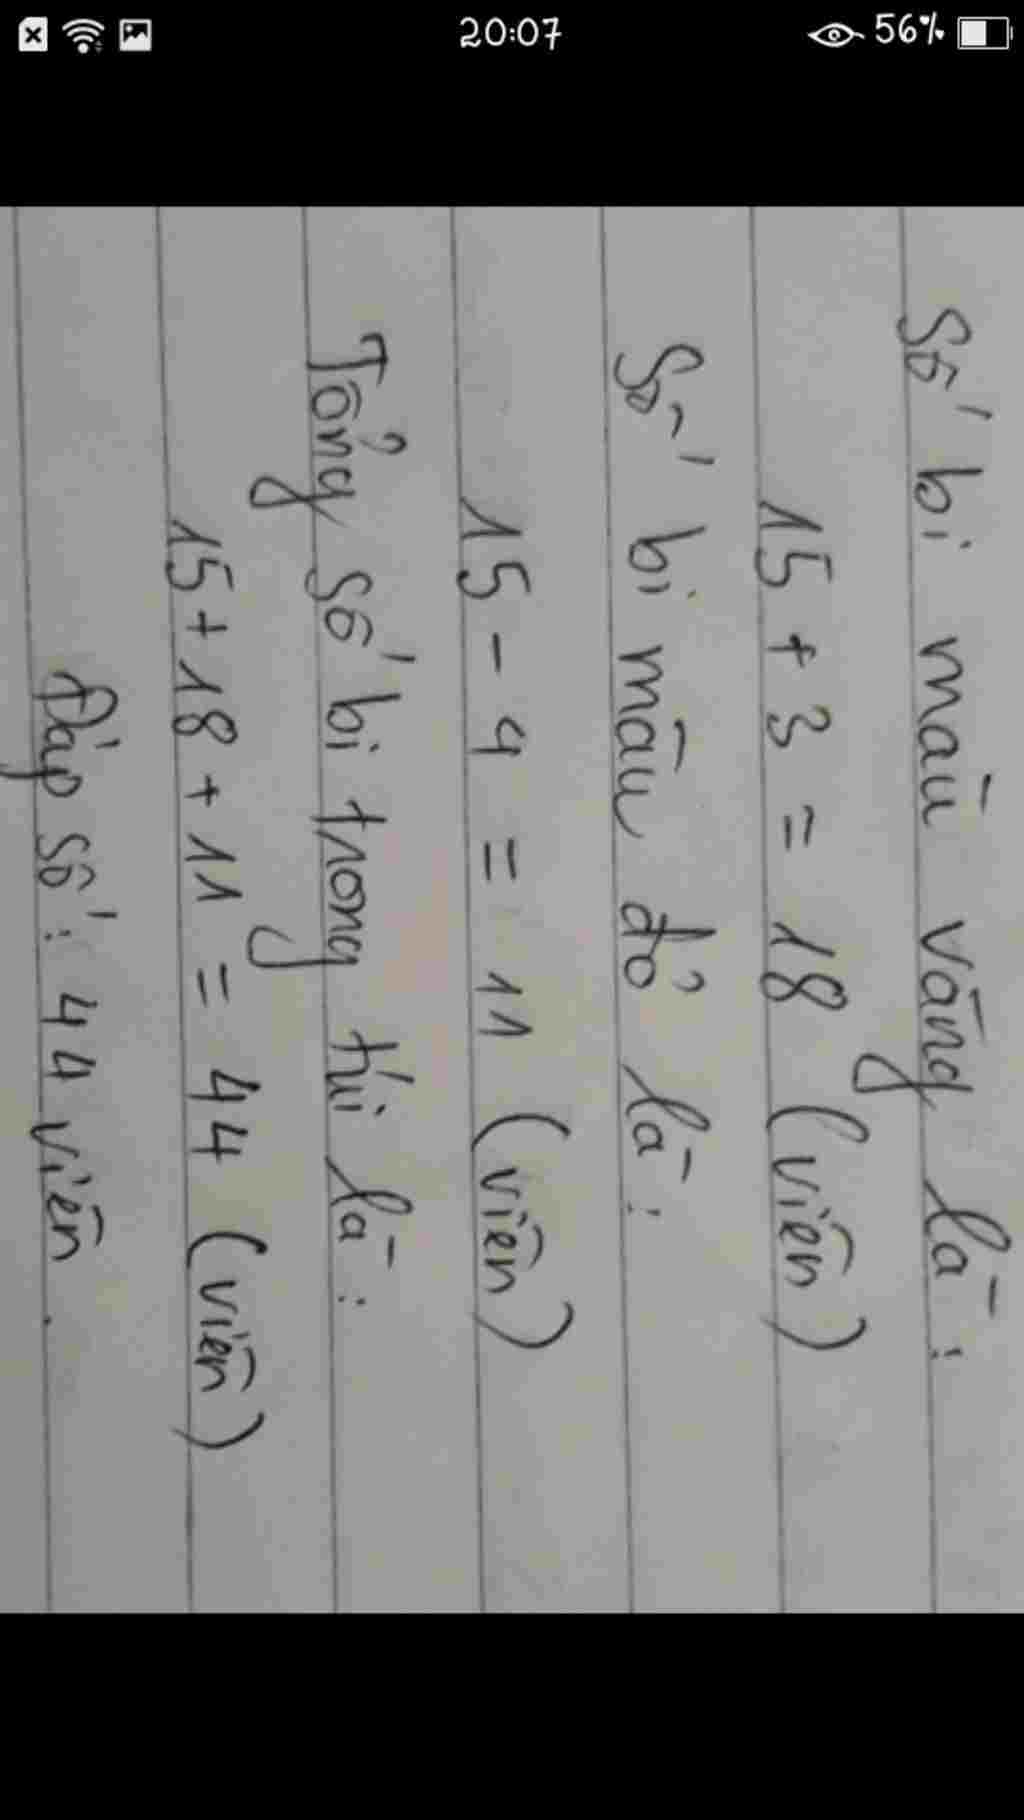 20:07
56%
Số bi màu vàng là:
15 + 3 = 18 (viên)
Số bi màu đỏ là:
15 - 4 = 11 (viên)
Tổng số bi trong túi là:
15 + 18 + 11 = 44 (viên)
Đáp số: 44 viên.